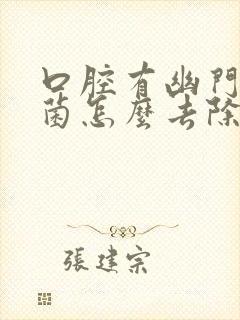 口腔有幽門
菌怎麼去除
張建宗